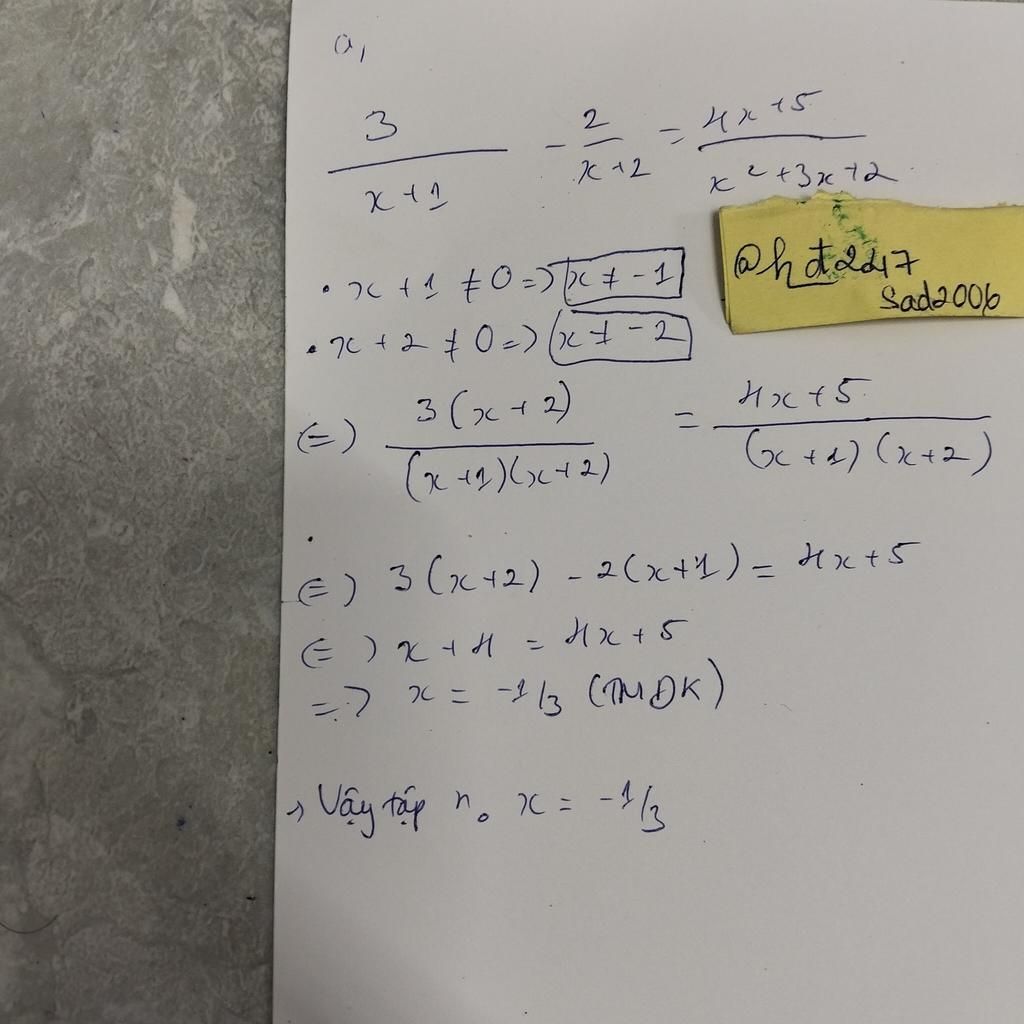 a,
3/(x+1) - 2/(x+2) = (4x+5)/(x²+3x+2)
@hdt2247
Sad2006
• x + 1 ≠ 0 => x ≠ -1
• x + 2 ≠ 0 => x ≠ -2
(=) 3(x+2)/((x+1)(x+2)) = (4x+5)/((x+1)(x+2))
(=) 3(x+2) - 2(x+1) = 4x+5
(=) x + 4 = 4x + 5
=> x = -1/3 (TMĐK)
→ Vậy tập n₀ x = -1/3